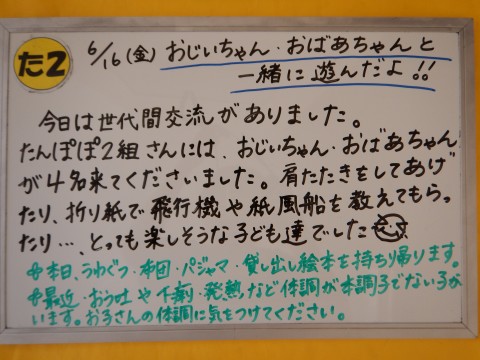 た2
6/16(金) おじいちゃん・おばあちゃんと
一緒に遊んだよ!!
今日は世代間交流がありました。
たんぽぽ2組さんには、おじいちゃん・おばあちゃん
が4名来てくださいました。肩たたきをしてあげ
たり、折り紙で飛行機や紙風船を教えてもらっ
たり…、とっても楽しそうな子ども達でした
本日、うわぐつ・布団・パジャマ・貸し出し絵本を持ち帰ります。
最近・おう吐や下痢・発熱など体調が本調子でない子が
います。お子さんの体調に気をつけてください。